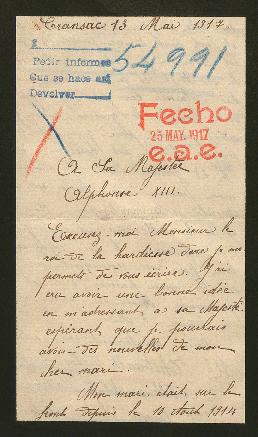 Cransac 13 Mai 1917
2
Pedir informes
Que se hace así
Devolver
54991
Fecho
25 MAY. 1917
e.a.e.
A Sa Majesté
Alphonse XIII.
Excusez-moi Monsieur le
roi de la hardiesse dont je me
permets de vous écrire. J'ai
cru avoir une bonne idée
en m'adressant à sa Majesté
espérant que je pourrais
avoir des nouvelles de mon
cher mari.
Mon mari était sur le
front depuis le 10 Août 1914